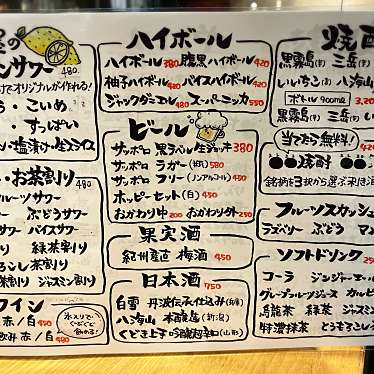 ンサワー 480
けでオリジナルが作れる!
う・こいめ
すっぱい
塩漬け・生スライス
・お茶割り 480
ルーツサワー
ー ぶどうサワー
ワー バイスサワー
り 緑茶割り
ろこし茶割り
割り ジャスミン割り
ワイン
赤/白 450
飲み 赤/白 480
氷入りで
ぐびぐび
飲める!
ハイボール
ハイボール 380 腹黒ハイボール 420
柚子ハイボール 450 バイスハイボール 450
ジャックダニエル 480 スーパーニッカ 550
ビール
サッポロ 黒ラベル 生ジョッキ 380
サッポロ ラガー (中瓶) 580
サッポロ フリー (ノンアルコール) 450
ホッピーセット (白) 450
おかわり中 200 おかわり外 250
果実酒
紀州産直 梅酒 450
日本酒 750
白雪 丹波伝承仕込み (兵庫)
八海山 本醸造 (新潟)
くどき上手 吟醸超辛口 (山形)
焼酎
黒霧島(芋) 三岳(芋)
いいちこ(麦) 八海山
ボトル 900mℓ 3,20
黒霧島(芋) 三岳(芋) い
当てたら無料! 420
焼酎
銘柄を3択から選ぶ利き酒
フルーツスカッシュ
ラズベリー ぶどう マン
ソフトドリンク 250
コーラ ジンジャーエール
グレープフルーツジュース カルピ
烏龍茶 緑茶 ジャスミン
特濃抹茶 とうもろこし